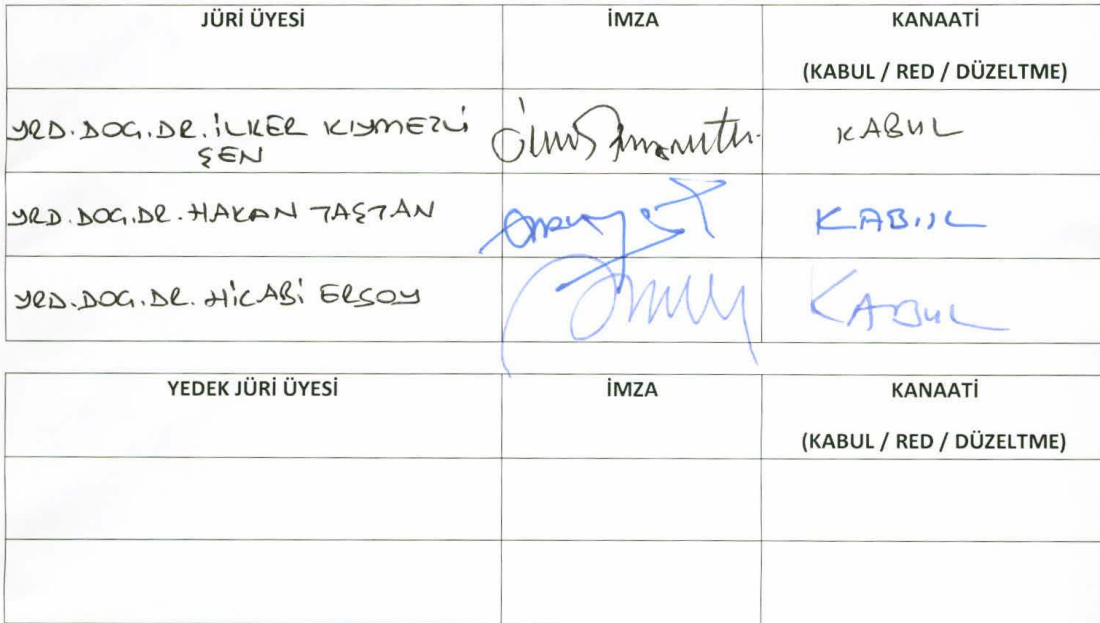 JÜRİ ÜYESİ İMZA KANAATİ
(KABUL / RED / DÜZELTME)
YRD. DOÇ. DR. İLKER KIYMETLİ KABUL
ŞEN
YRD. DOÇ. DR. HAKAN TAŞTAN KABUL
YRD. DOÇ. DR. HİCABİ ERSOY KABUL
YEDEK JÜRİ ÜYESİ İMZA KANAATİ
(KABUL / RED / DÜZELTME)